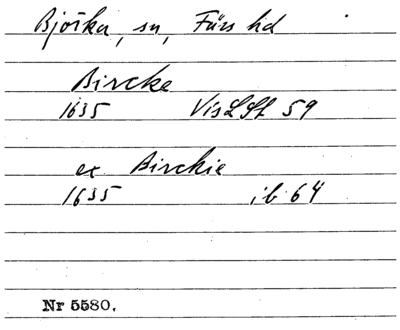 Björka, sn, Färs hd
Bircke
1635 VisLSt 59
ex Birckie
1635 ib 64
Nr 5580.